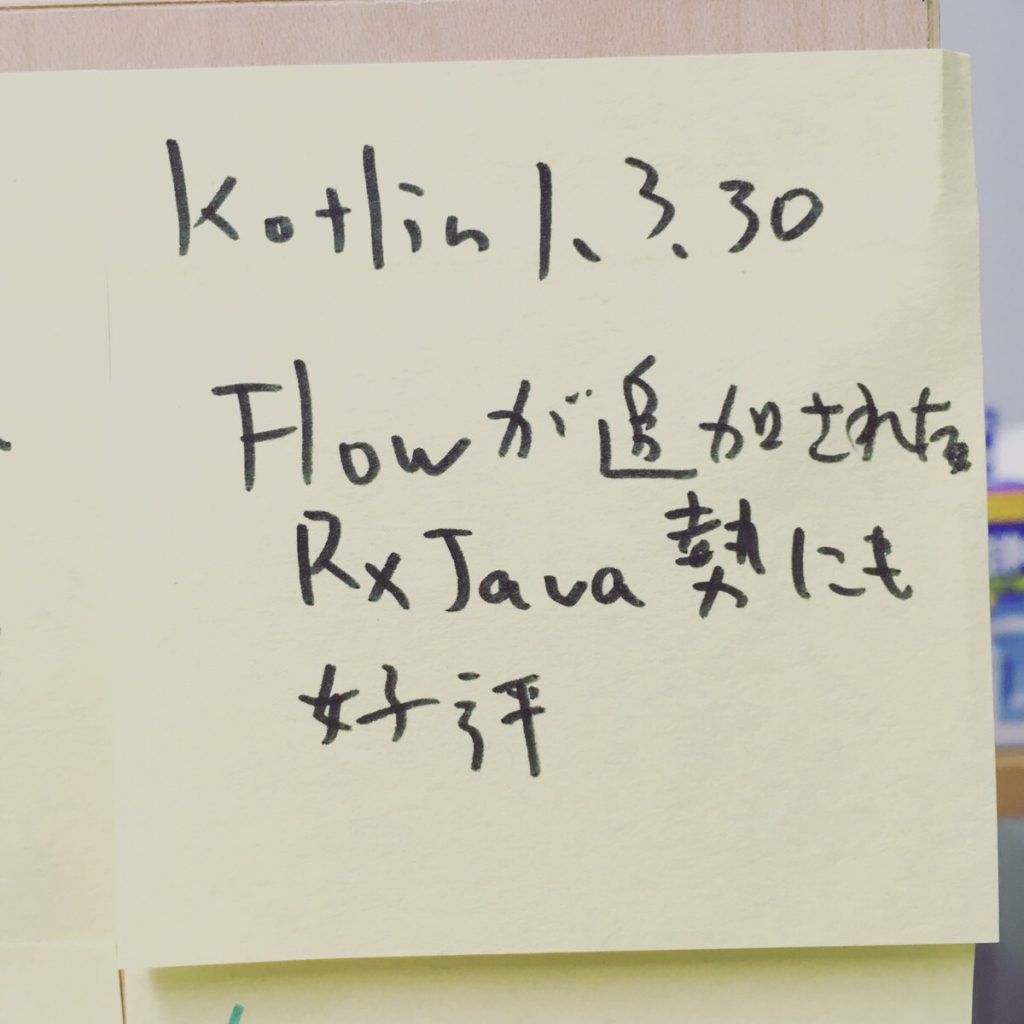 Kotlin 1.3.30
Flowが追加された
RxJava勢にも
好評